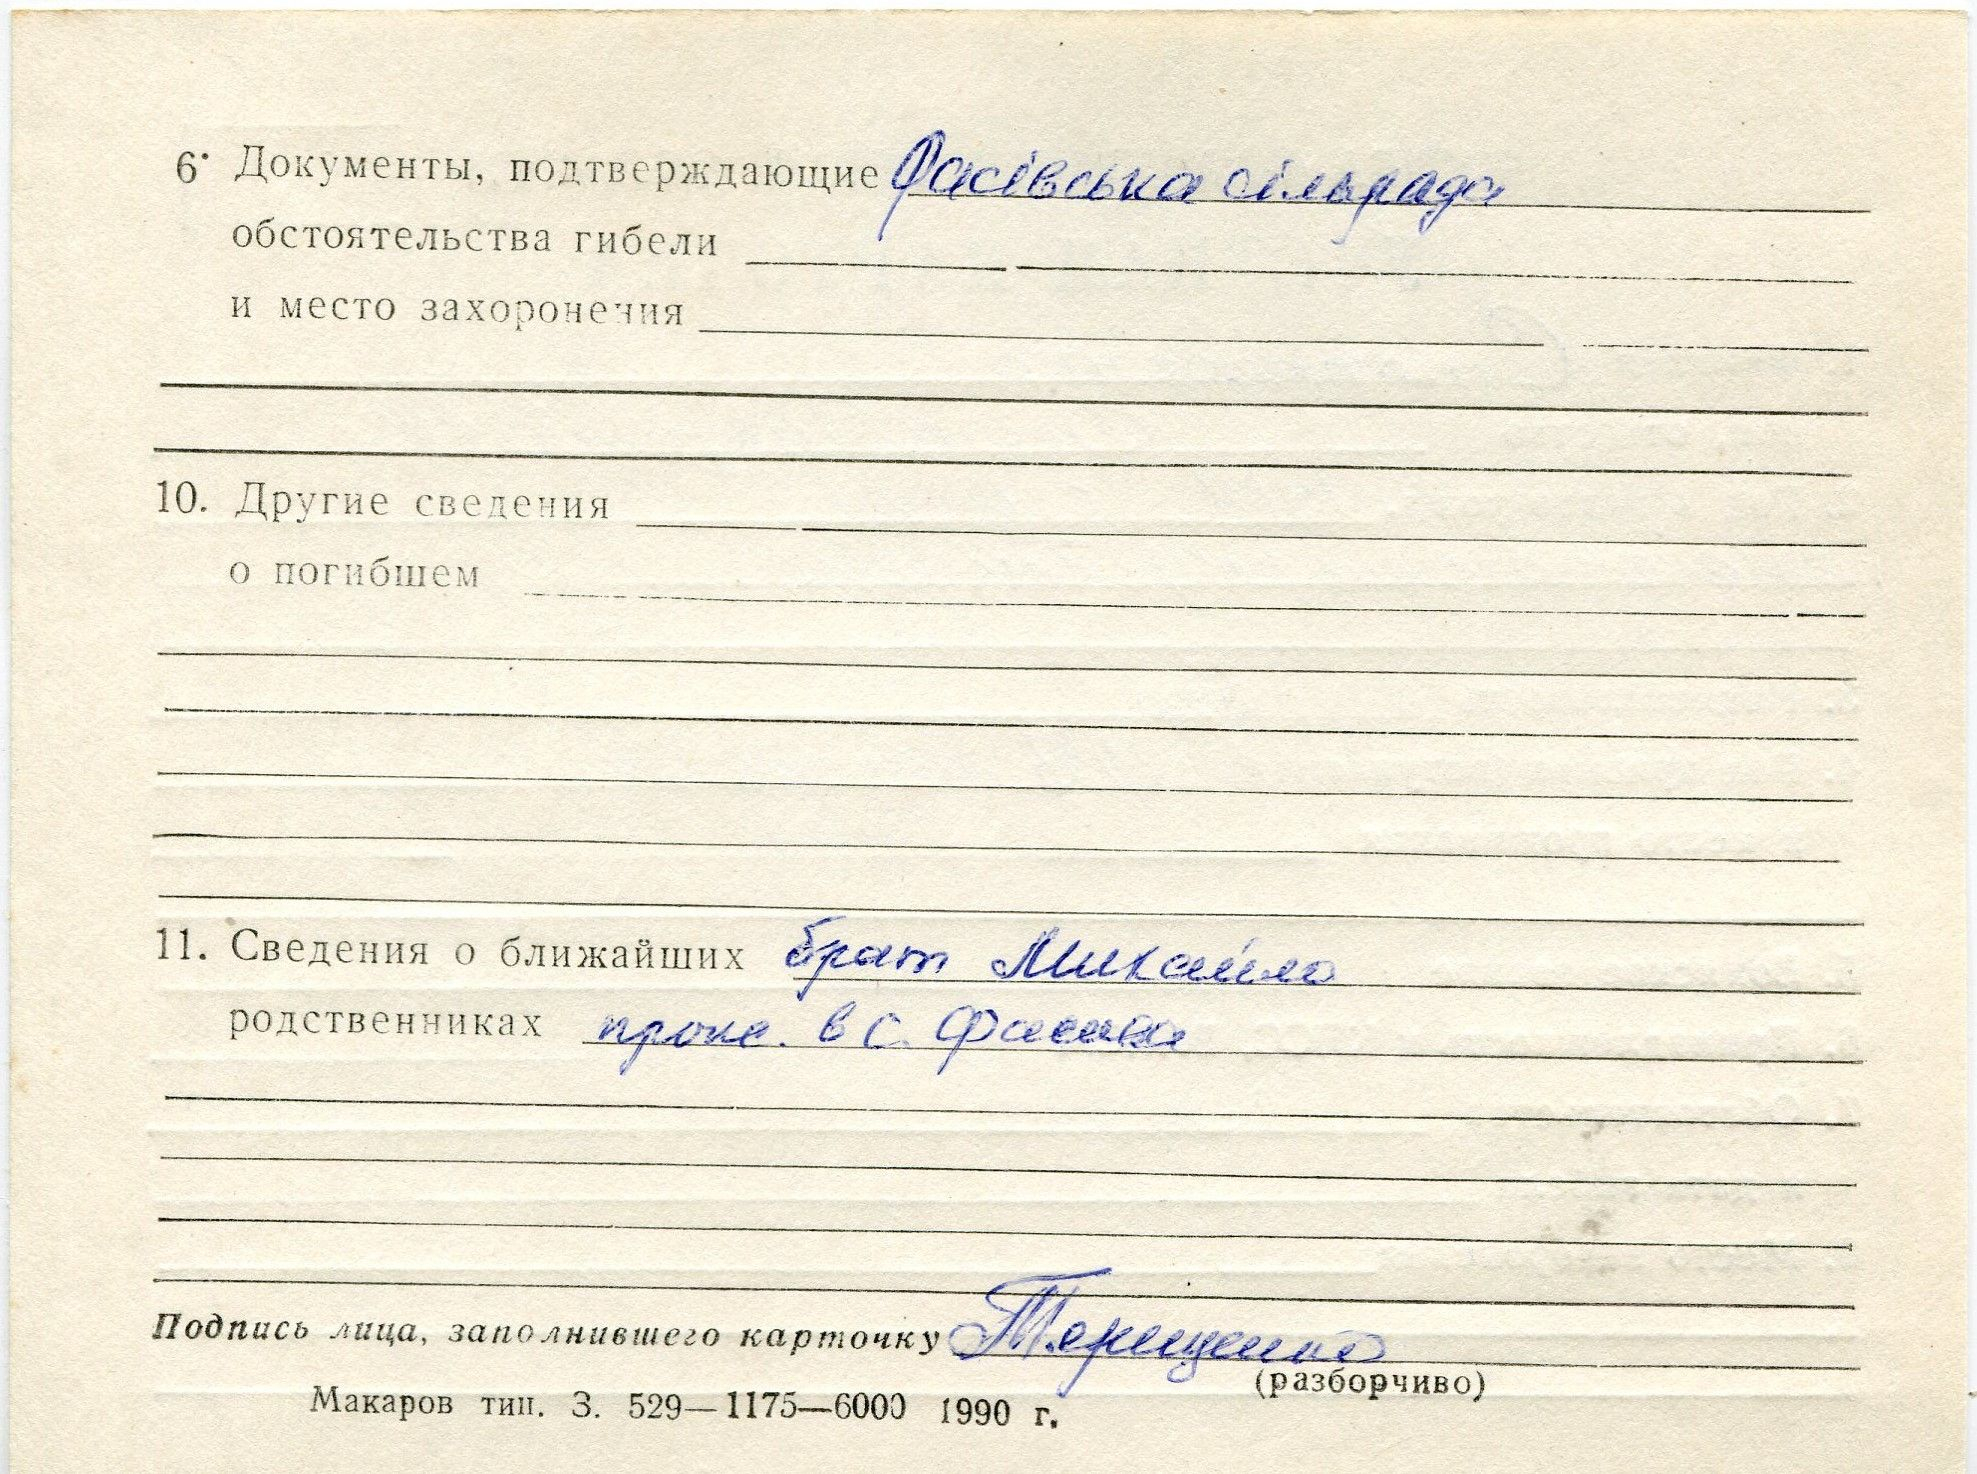 6. Документы, подтверждающие Фасівська сільрада
обстоятельства гибели
и место захоронения
10. Другие сведения
о погибшем
11. Сведения о ближайших брат Михайло
родственниках прож. в с. Фасова
Подпись лица, заполнившего карточку Терещенко
(разборчиво)
Макаров тип. З. 529—1175—6000 1990 г.